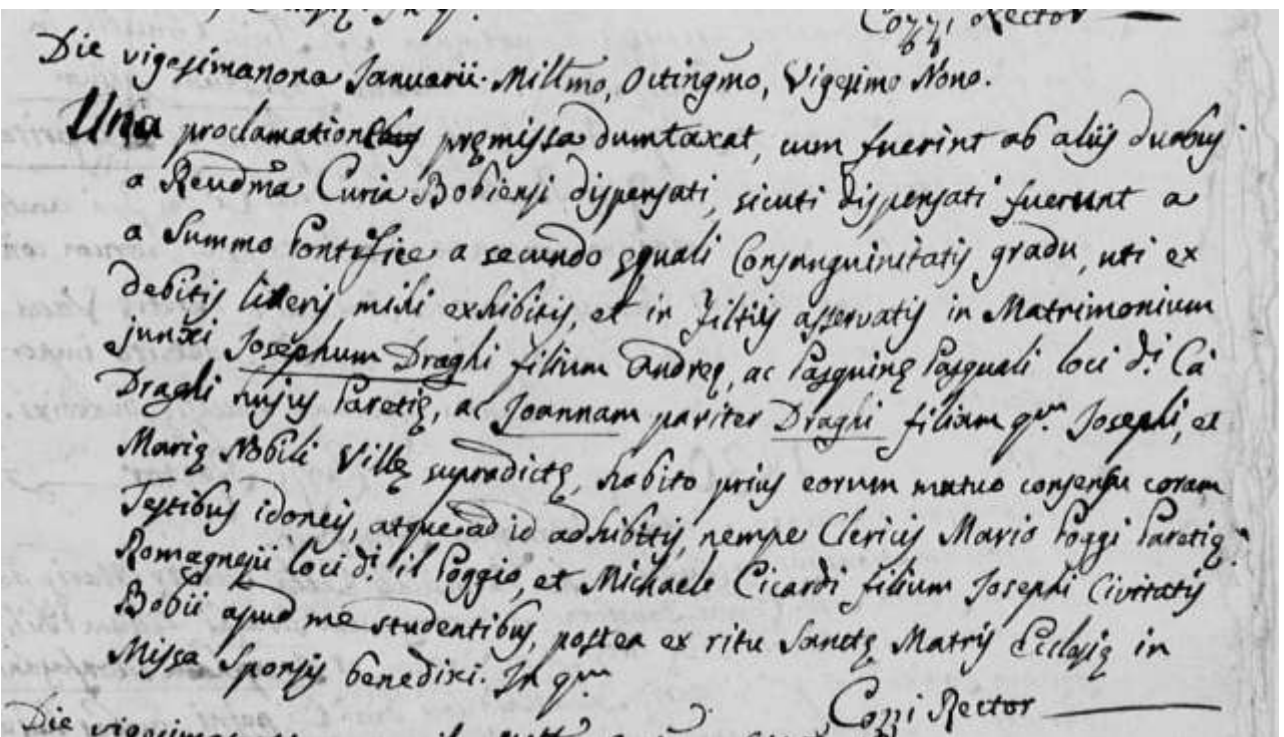 Cozzi Rector
Die vigesimanona Januarii Millmo, Octingmo, Vigesimo Nono.
Una proclamation pręmissa dumtaxat, cum fuerint ab aliis duobus
a Reudma Curia Bobiensi dispensati, sicuti dispensati fuerunt a
a Summo Pontifice a secundo ęquali Consanguinitatis gradu, uti ex
debitis litteris mihi exhibitis, et in Filtiis asservatis in Matrimonium
junxi Josephum Draghi filium Andreę, ac Pasquinę Pasquali loci di. Cà
Draghi hujus Paretię, ac Joannam pariter Draghi filiam qm. Josephi, et
Marię Nobili Villę supradictę, habito prius eorum mutuo consensu coram
Testibus idoneis, atque ad id adhibitis, nempe Clericis Mario Poggi Paretię
Romagnesii loci di. il Poggio, et Michaele Cicardi filium Josephi Civitatis
Bobii apud me studentibus, postea ex ritu Sanctę Matris Ecclesię in
Missa Sponsis benedixi. In qm
Cozzi Rector
Die